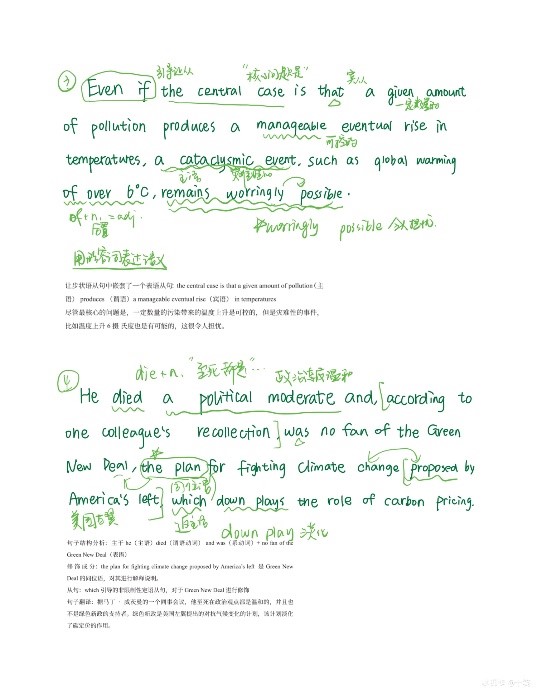 引导让从 "核心问题是" 实从
③ Even if the central case is that a given amount
一定数量的
of pollution produces a manageable eventual rise in
可控的
temperatures, a cataclysmic event, such as global warming
主语 灾难性的
of over 6°C, remains worryingly possible.
of + n. = adj. ☆worryingly possible 令人担忧
后置
用形容词表达谓义
让步状语从句中嵌套了一个表语从句: the central case is that a given amount of pollution (主
语) produces （谓语）a manageable eventual rise（宾语） in temperatures
尽管最核心的问题是，一定数量的污染带来的温度上升是可控的，但是灾难性的事件，
比如温度上升 6 摄 氏度也是有可能的，这很令人担忧。
die + n. "至死都是"… 政治态度温和
④ He died a political moderate and, [according to
one colleague's recollection] was no fan of the Green
New Deal, the plan for fighting climate change [proposed by
同位语
America's left], which down plays the role of carbon pricing.
美国左翼 down play 淡化
句子结构分析：主干 he（主语）died（谓语动词） and was（系动词）+ no fan of the
Green New Deal（表语）
修 饰 成 分：the plan for fighting climate change proposed by America's left 是 Green New
Deal 的同位语，对其进行解释说明。
从句：which 引导的非限制性定语从句，对于 Green New Deal 进行修饰
句子翻译：据马丁· 成茨曼的一个同事会议，他至死在政治观点都是温和的，并且也
不是绿色新政的支持者，绿色新政是美国左翼提出的对抗气候变化的计划，该计划淡化
了碳定价的作用。